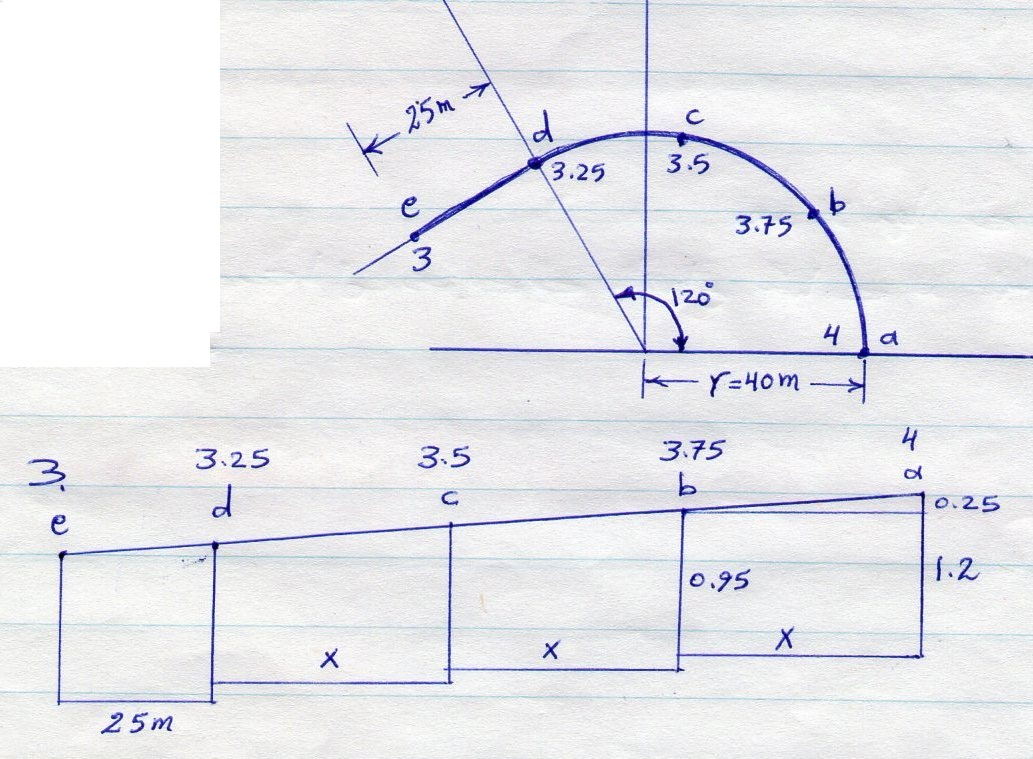 25m
d
c
3.25
3.5
e
b
3.75
3
120°
4
a
r=40m
3.
3.25
3.5
3.75
4
e
d
c
b
a
0.25
0.95
1.2
x
x
x
25m